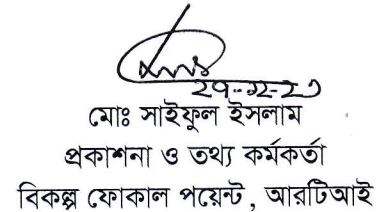 ২৭-১২-২৩
মোঃ সাইফুল ইসলাম
প্রকাশনা ও তথ্য কর্মকর্তা
বিকল্প ফোকাল পয়েন্ট, আরটিআই